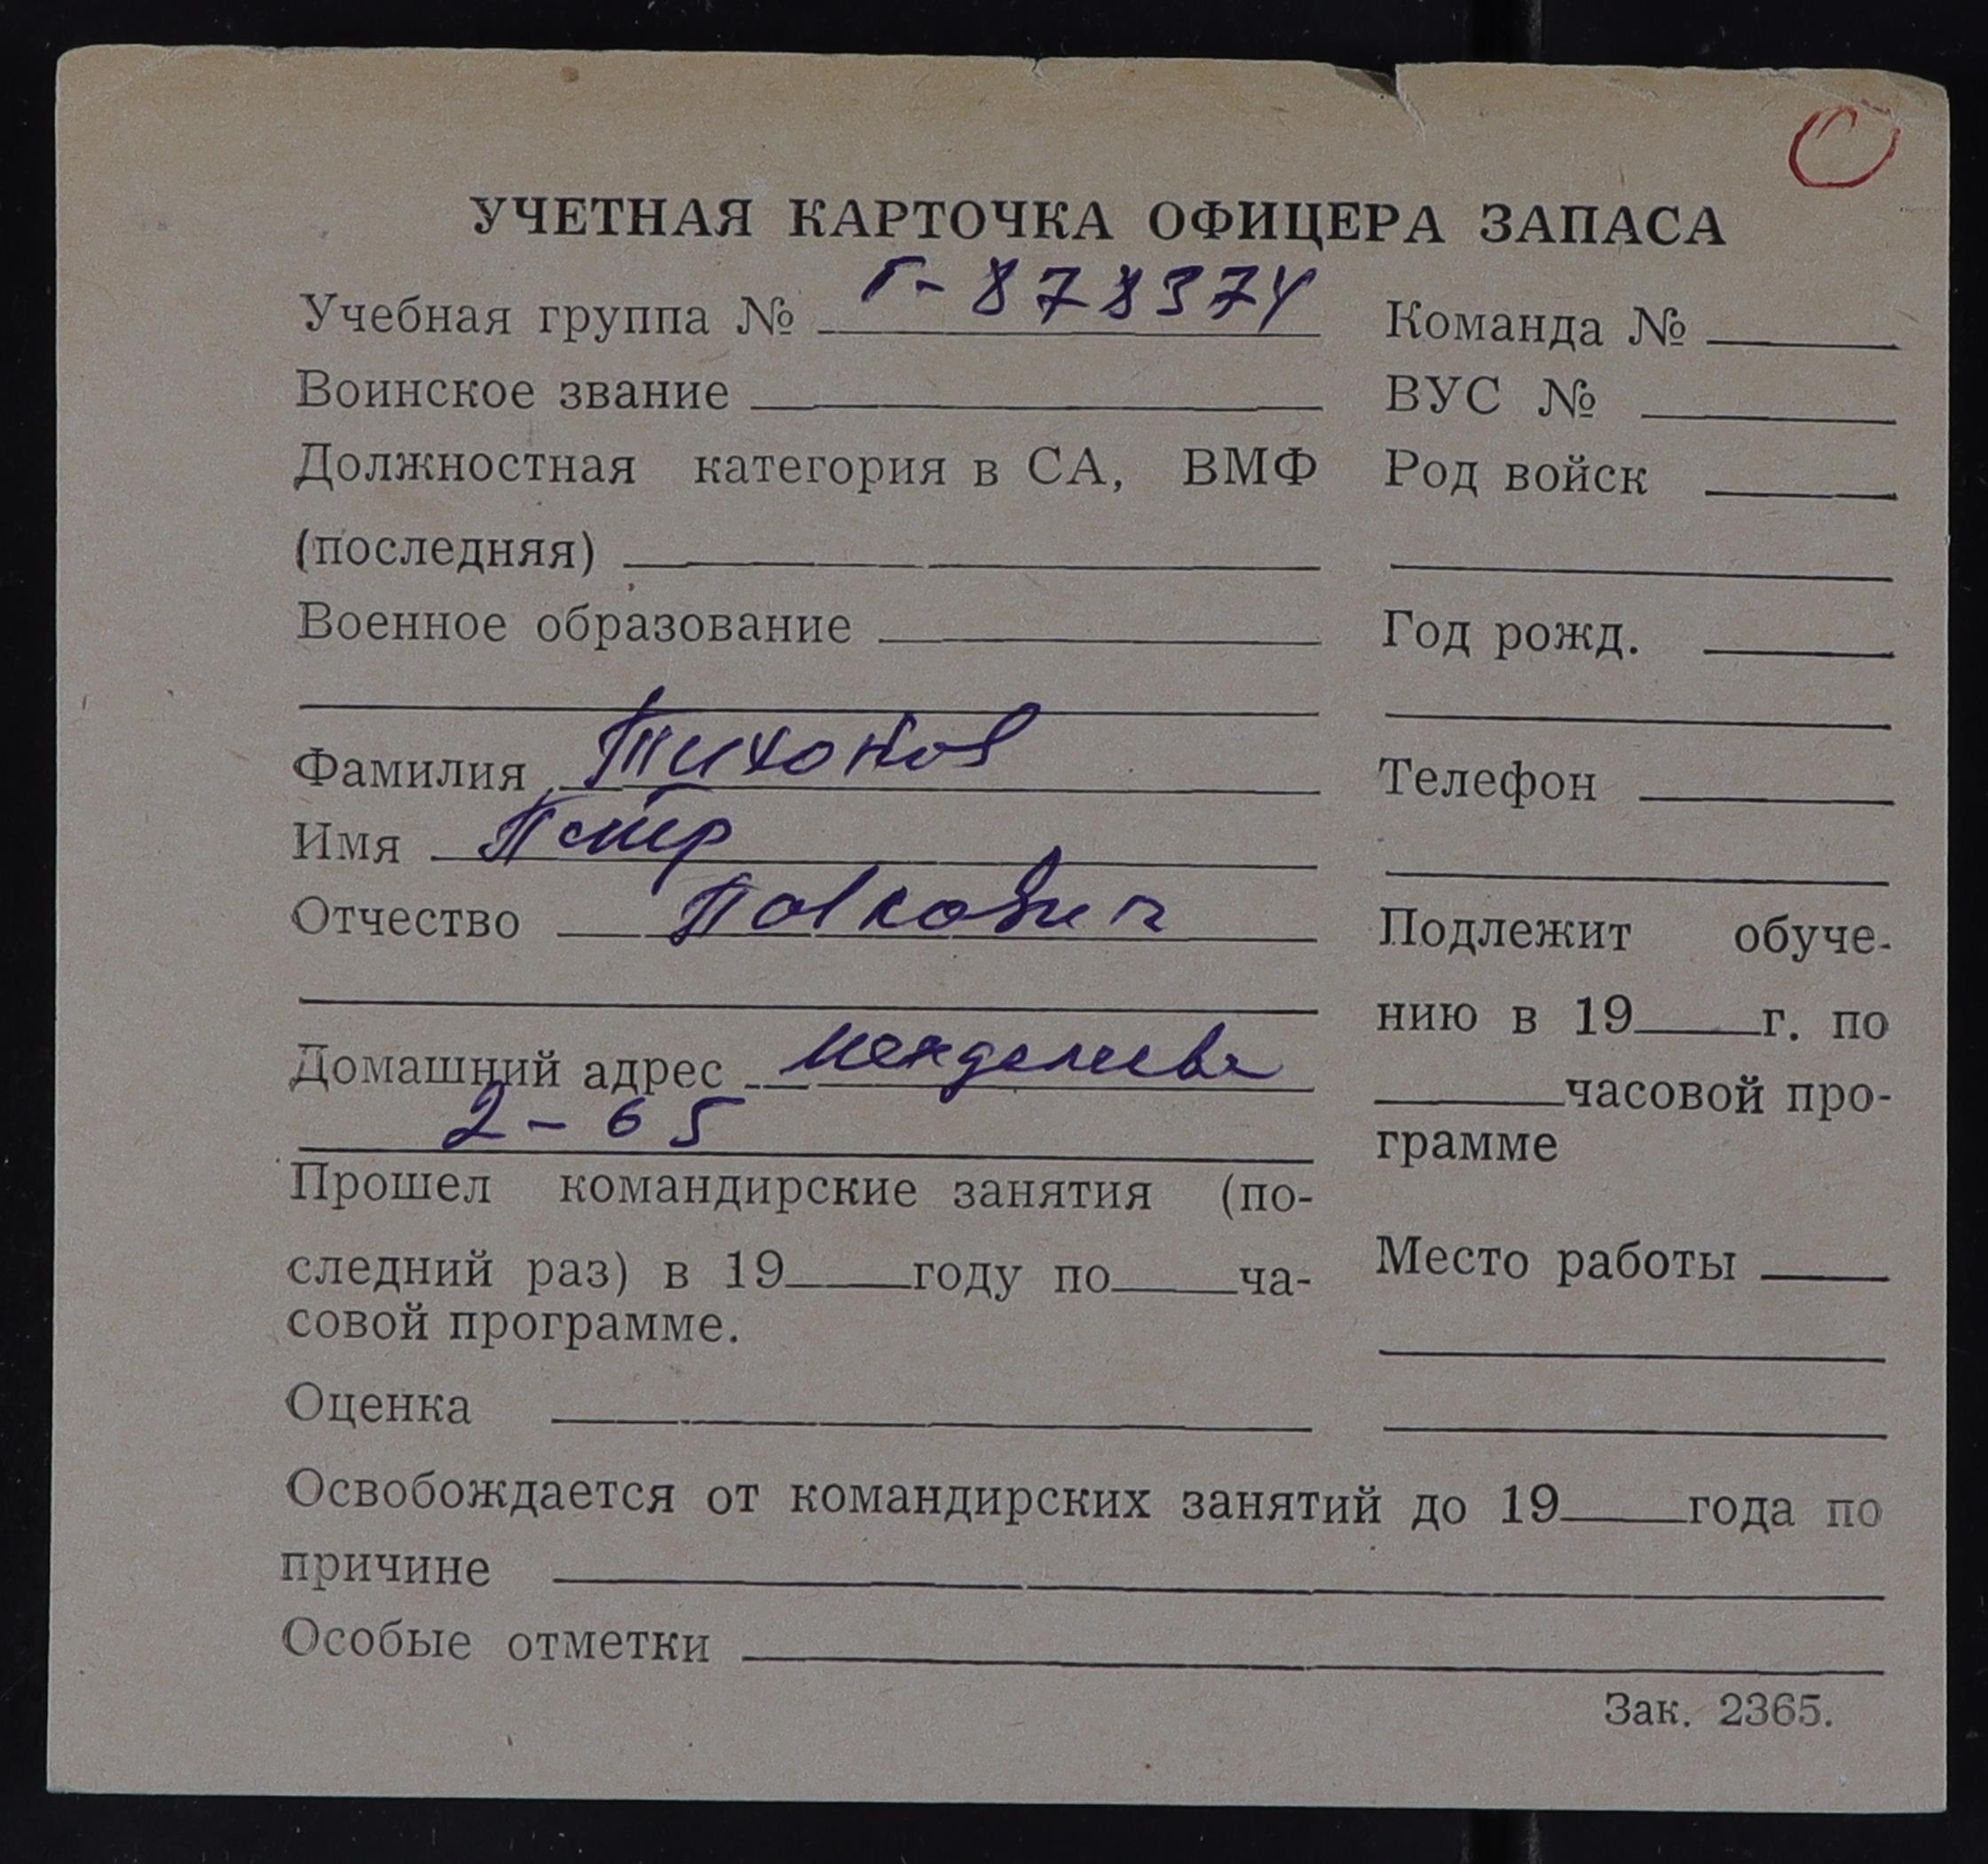 УЧЕТНАЯ КАРТОЧКА ОФИЦЕРА ЗАПАСА
Учебная группа № Г-878374
Воинское звание
Должностная категория в СА, ВМФ
(последняя)
Военное образование
Фамилия Тихонов
Имя Петр
Отчество
Домашний адрес Менделеева
2-65
Прошел командирские занятия (по-
следний раз) в 19 году по ча-
совой программе.
Оценка
Команда №
ВУС №
Род войск
Год рожд.
Телефон
Подлежит обуче-
нию в 19 г. по
часовой про-
грамме
Место работы
Освобождается от командирских занятий до 19 года по
причине
Особые отметки
Зак. 2365.